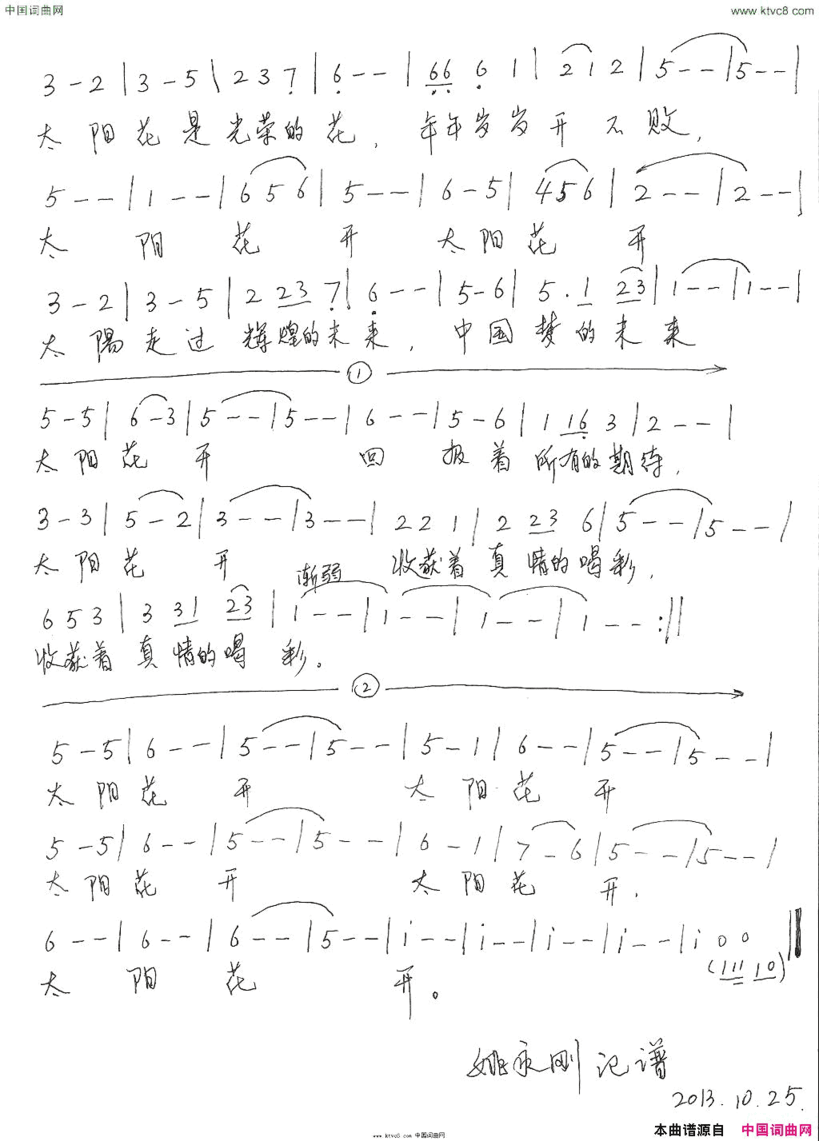 中国词曲网 www.ktvc8.com
3 - 2 | 3 - 5 | 2 3 7̣ | 6̣ - - | 6̣6̣ 6̣ 1 | 2 1 2 | 5 - - | 5 - - |
太阳花是光荣的花，年年岁岁开不败，
5 - - | 1 - - | 6 5 6 | 5 - - | 6 - 5 | 4 5 6 | 2 - - | 2 - - |
太 阳 花 开 太阳花 开
3 - 2 | 3 - 5 | 2 23 7̣ | 6̣ - - | 5 - 6 | 5 . 1 23 | 1 - - | 1 - - |
太陽走过 辉煌的未来，中国梦的未来
①
5 - 5 | 6 - 3 | 5 - - | 5 - - | 6 - - | 5 - 6 | 1 16̣ 3 | 2 - - |
太阳花 开 回 报着 所有的期待，
3 - 3 | 5 - 2 | 3 - - | 3 - - | 2 2 1 | 2 23 6 | 5 - - | 5 - - |
太阳花 开 收获着真情的喝彩，
渐弱
6 5 3 | 3 31 23 | 1 - - | 1 - - | 1 - - | 1 - - :||
收获着真情的喝 彩。
②
5 - 5 | 6 - - | 5 - - | 5 - - | 5 - 1 | 6 - - | 5 - - | 5 - - |
太阳花 开 太阳花 开
5 - 5 | 6 - - | 5 - - | 5 - - | 6 - 1 | 7 - 6 | 5 - - | 5 - - |
太阳花 开 太阳花 开.
6 - - | 6 - - | 6 - - | 5 - - | i - - | i - - | i - - | i - - | i 0 0 ||
(111 10)
太 阳 花 开。
姚永刚记谱
2013.10.25.
本曲谱源自 中国词曲网
www.ktvc8.com 中国词曲网